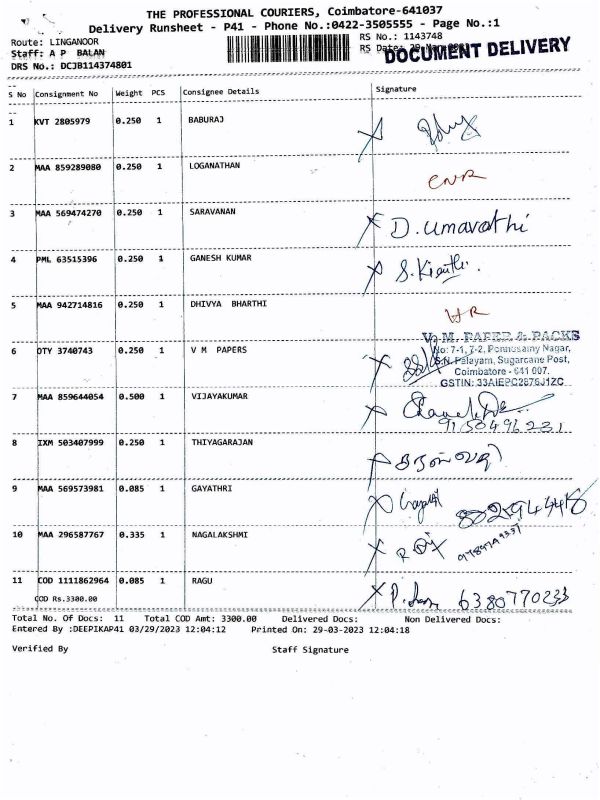 THE PROFESSIONAL COURIERS, Coimbatore-641037
Delivery Runsheet - P41 - Phone No.:0422-3505555 - Page No.:1
Route: LINGANOOR
RS No.: 1143748
Staff: A P BALAN
RS Date:
DOCUMENT DELIVERY
DRS No.: DCJB114374801
S No Consignment No Weight PCS Consignee Details Signature
1 KVT 2805979 0.250 1 BABURAJ
2 MAA 859289080 0.250 1 LOGANATHAN
CNR
3 MAA 569474270 0.250 1 SARAVANAN D. Umavathi
4 PML 63515396 0.250 1 GANESH KUMAR
5 MAA 942714816 0.250 1 DHIVYA BHARTHI
V. M. PAPER & PACKS
6 OTY 3740743 0.250 1 V M PAPERS No: 7-1, 7-2, Ponnusamy Nagar,
S.N. Palayam, Sugarcane Post,
Coimbatore - 641 007.
GSTIN: 33AIEPC2876J1ZC
7 MAA 859644054 0.500 1 VIJAYAKUMAR
9150496231
8 IXM 503407999 0.250 1 THIYAGARAJAN
9 MAA 569573981 0.085 1 GAYATHRI
10 MAA 296587767 0.335 1 NAGALAKSHMI
11 COD 1111862964 0.085 1 RAGU 6380770233
COD Rs.3300.00
Total No. Of Docs: 11 Total COD Amt: 3300.00 Delivered Docs: Non Delivered Docs:
Entered By :DEEPIKAP41 03/29/2023 12:04:12 Printed On: 29-03-2023 12:04:18
Verified By Staff Signature